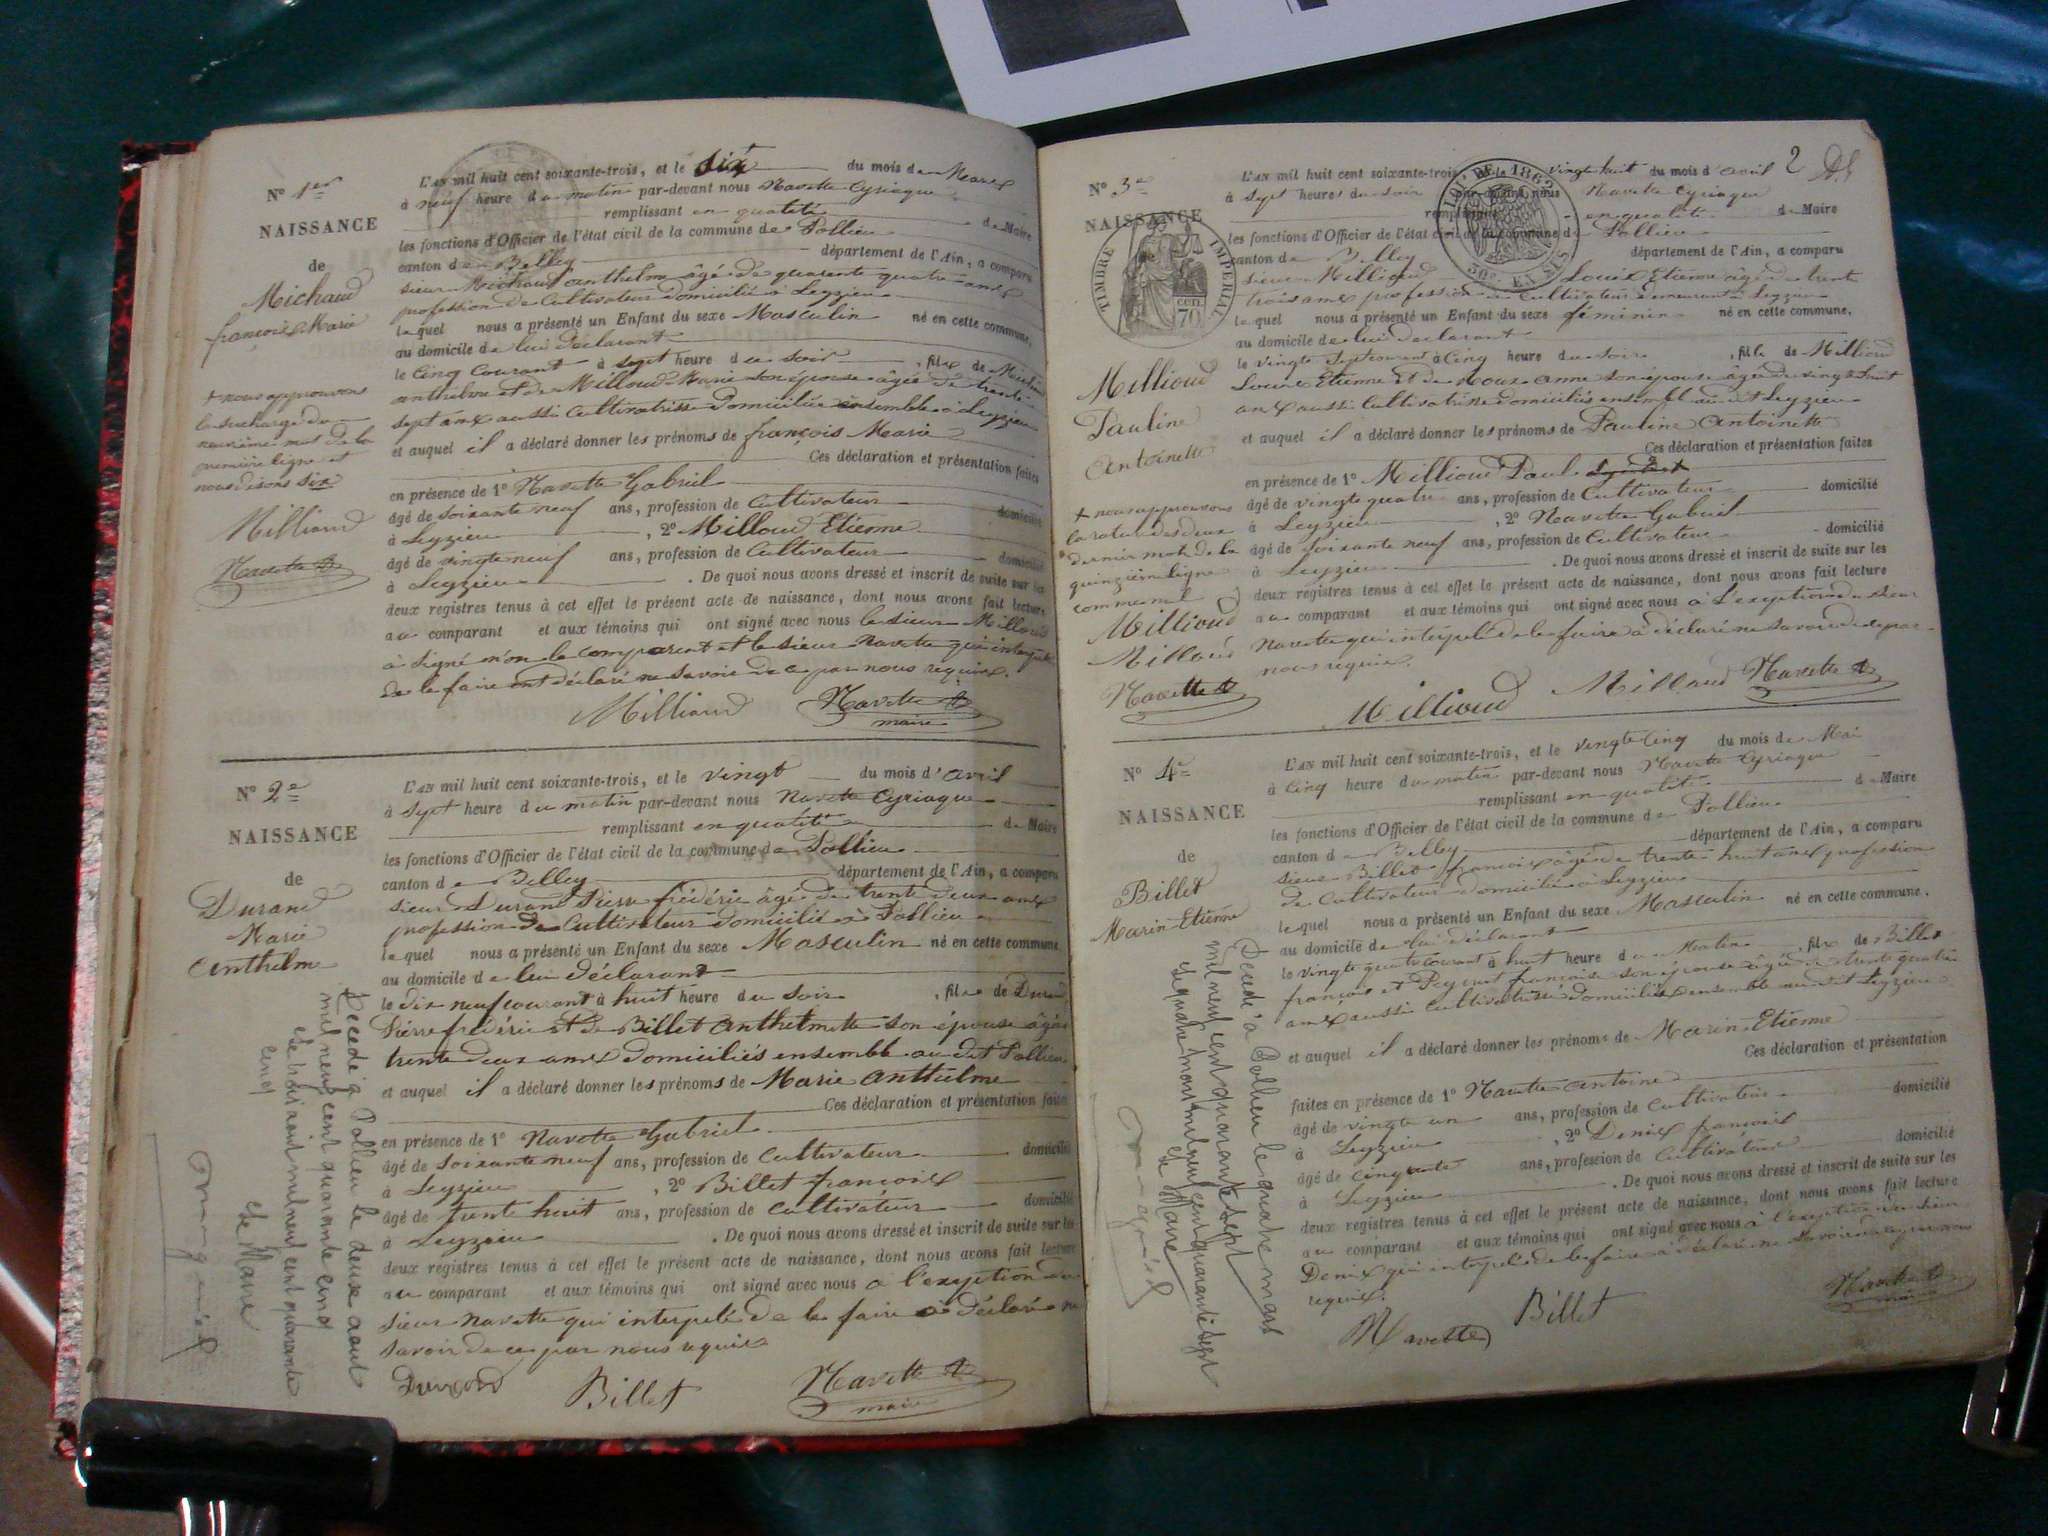 N° 1er
NAISSANCE
de
Michaud
françois Marie
+ nous approuvons
la surcharge du
neuvième mot de la
première ligne et
nous disons six
Milliaud
Navette
L'AN mil huit cent soixante-trois, et le six du mois de Mars
à neuf heure du matin par-devant nous Navette Cyriaque
remplissant en qualité de Maire
les fonctions d'Officier de l'état civil de la commune de Pollieu
canton de Belley département de l'Ain, a comparu
sieur Michaud anthelme âgé de quarente quatre ans
profession de Cultivateur domicilié à Leyzieu
lequel nous a présenté un Enfant du sexe Masculin né en cette commune,
au domicile de lui déclarant
le Cinq courant à sept heure du soir, fils de Michaud
anthelme et de Milloud Marie son épouse âgée de trente
sept ans aussi Cultivatrisse Domiciliés ensemble à Leyzieu
et auquel il a déclaré donner les prénoms de françois Marie
Ces déclaration et présentation faites
en présence de 1° Navette Gabriel
âgé de soixante neuf ans, profession de Cultivateur domicilié
à Leyzieu, 2° Milloud Etienne
âgé de vingte neuf ans, profession de Cultivateur domicilié
à Leyzieu. De quoi nous avons dressé et inscrit de suite sur les
deux registres tenus à cet effet le présent acte de naissance, dont nous avons fait lecture
au comparant et aux témoins qui ont signé avec nous le sieur Milloud
à signé non le comparent et le sieur Navette qui interpelé
de le faire ont déclaré ne savoir de ce par nous requis.
Milliaud Navette
maire
N° 2e
NAISSANCE
de
Durand
Marie
anthelme
Décédé à Pollieu le deux aout
mil neuf cent quarante cinq
le trois aout mil neuf cent quarante
cinq
Le Maire
L'AN mil huit cent soixante-trois, et le vingt du mois d'avril
à sept heure du matin par-devant nous Navette Cyriaque
remplissant en qualité de Maire
les fonctions d'Officier de l'état civil de la commune de Pollieu
canton de Belley département de l'Ain, a comparu
sieur Durand Pierre frédéric âgé de trente deux ans
profession de Cultivateur domicilié à Pollieu
lequel nous a présenté un Enfant du sexe Masculin né en cette commune,
au domicile de lui déclarant
le dix neuf courant à huit heure du soir, fils de Durand
Pierre frédéric et de Billet anthelmette son épouse âgée
trente deux ans domiciliés ensemble au dit Pollieu
et auquel il a déclaré donner les prénoms de Marie anthelme
Ces déclaration et présentation faites
en présence de 1° Navette Gabriel
âgé de soixante neuf ans, profession de Cultivateur domicilié
à Leyzieu, 2° Billet françois
âgé de trente huit ans, profession de Cultivateur domicilié
à Leyzieu. De quoi nous avons dressé et inscrit de suite sur les
deux registres tenus à cet effet le présent acte de naissance, dont nous avons fait lecture
au comparant et aux témoins qui ont signé avec nous a l'exeption du
sieur Navette qui interpelé de le faire a déclaré ne
savoir de ce par nous requis
Durand Billet Navette
maire
2
N° 3e
NAISSANCE
TIMBRE IMPERIAL
70 CEN.
LOI DE 1862
50C. EN SUS
Millioud
Pauline
Antoinette
+ nous approuvons
la rature des deux
dernier mot de la
quinzième ligne
comme nul
Millioud
Millaud
Navette
L'AN mil huit cent soixante-trois, vingt huit du mois d'avril
à sept heures du soir par-devant nous Navette Cyriaque
remplissant en qualité de Maire
les fonctions d'Officier de l'état civil de la commune de Pollieu
canton de Belley département de l'Ain, a comparu
sieur Millioud Louis Etienne âgé de trente
trois ans profession de Cultivateur demeurant à Leyzieu
lequel nous a présenté un Enfant du sexe féminin né en cette commune,
au domicile de lui déclarant
le vingte sept courant à Cinq heure du soir, fille de Millioud
Louis Etienne et de Roux anne son épouse âgée de vingt huit
ans aussi Cultivatrisse domiciliés ensemble au dit Leyzieu
et auquel il a déclaré donner les prénoms de Pauline Antoinette
Ces déclaration et présentation faites
en présence de 1° Millioud Paul
âgé de vingte quatre ans, profession de Cultivateur domicilié
à Leyzieu, 2° Navette Gabriel
âgé de soixante neuf ans, profession de Cultivateur domicilié
à Leyzieu. De quoi nous avons dressé et inscrit de suite sur les
deux registres tenus à cet effet le présent acte de naissance, dont nous avons fait lecture
au comparant et aux témoins qui ont signé avec nous à l'exeption du sieur
Navette qui interpelé de le faire à déclaré ne savoir de ce par
nous requis.
Millioud Millaud Navette
N° 4e
NAISSANCE
de
Billet
Marin Etienne
Décédé à Pollieu le quatre mars
mil neuf cent quarante sept
le quatre mars mil neuf cent quarante sept
Le Maire
L'AN mil huit cent soixante-trois, et le vingte Cinq du mois de Mai
à Cinq heure du matin par-devant nous Navette Cyriaque
remplissant en qualité de Maire
les fonctions d'Officier de l'état civil de la commune de Pollieu
canton de Belley département de l'Ain, a comparu
sieur Billet françois âgé de trente huit ans profession
de Cultivateur domicilié à Leyzieu
lequel nous a présenté un Enfant du sexe Masculin né en cette commune.
au domicile de lui déclarant
le vingte quatre courant à huit heure du Matin, fils de Billet
françois et Peyssot françoise son épouse âgée de trente quatre
ans aussi Cultivatrisse domiciliés ensemble au dit Leyzieu
et auquel il a déclaré donner les prénoms de Marin Etienne
Ces déclaration et présentation
faites en présence de 1° Navette antoine
âgé de vingte un ans, profession de Cultivateur domicilié
à Leyzieu, 2° Denis françois
âgé de Cinquante ans, profession de Cultivateur domicilié
à Leyzieu. De quoi nous avons dressé et inscrit de suite sur les
deux registres tenus à cet effet le présent acte de naissance, dont nous avons fait lecture
au comparant et aux témoins qui ont signé avec nous à l'exeption du sieur
Denis qui interpelé de le faire à déclaré ne savoir de ce par nous
requis.
Navette Billet Navette
maire